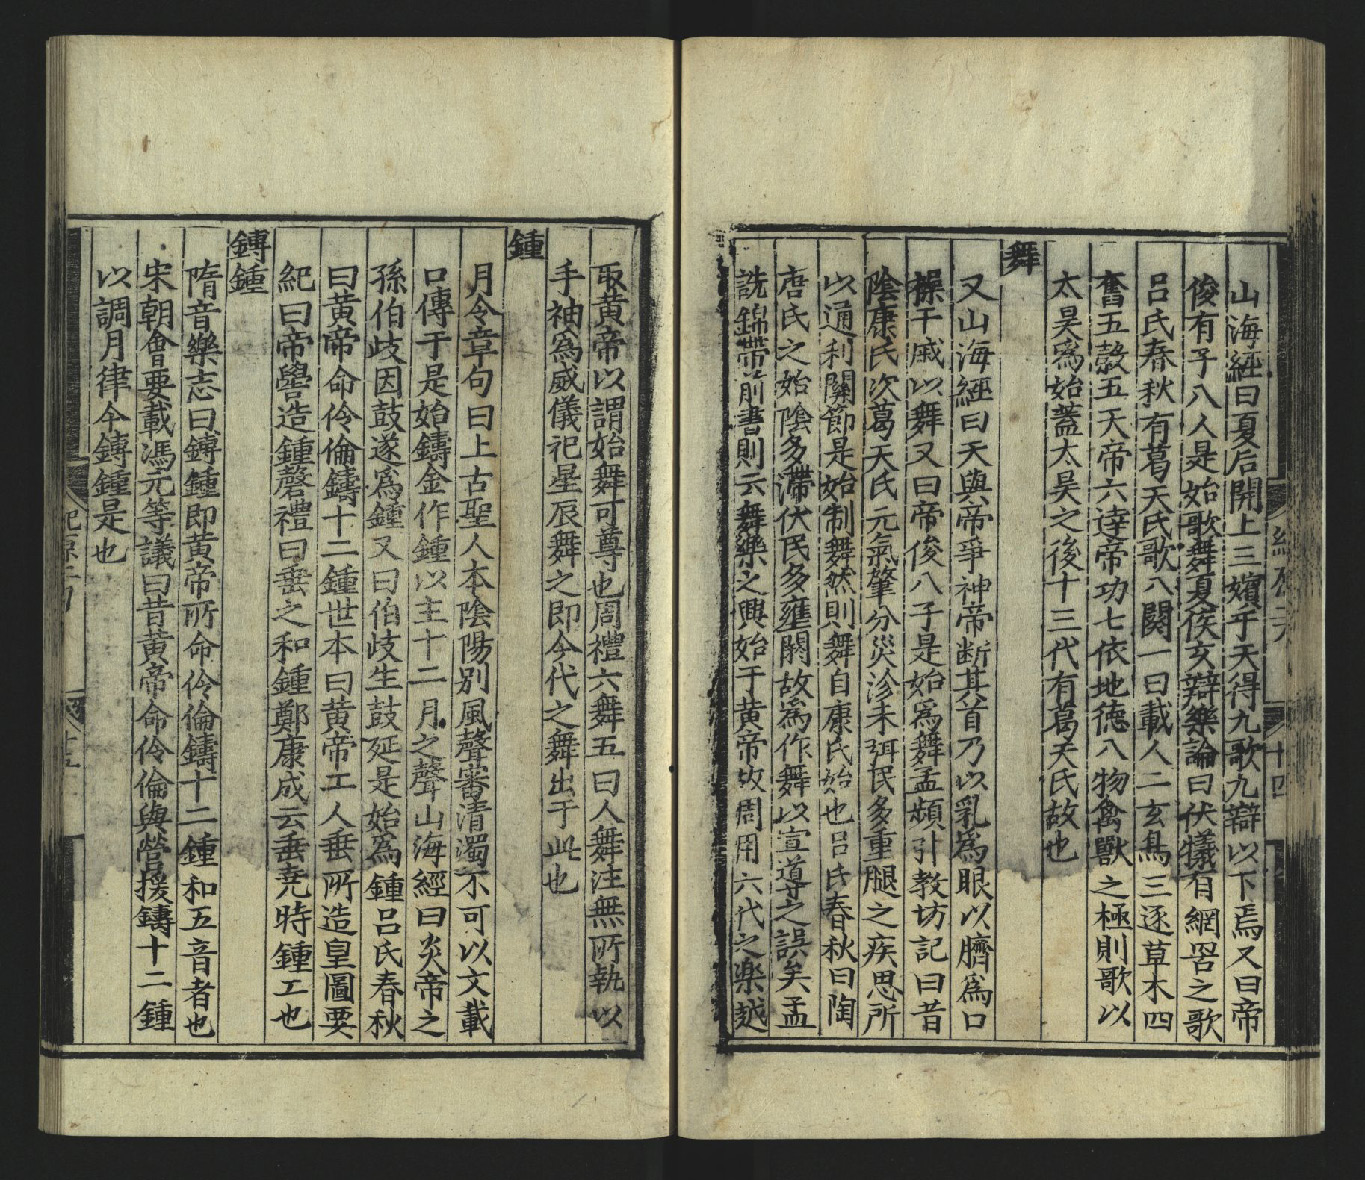 山海經曰夏后開上三嬪于天得九歌九辯以下焉又曰帝
俊有子八人是始歌舞夏侯玄辯樂論曰伏犧有網罟之歌
呂氏春秋有葛天氏歌八闋一曰載人二玄鳥三逐草木四
奮五穀五天帝六達帝功七依地德八物禽獸之極則歌以
太昊爲始蓋太昊之後十三代有葛天氏故也
舞
又山海經曰天與帝爭神帝断其首乃以乳爲眼以臍爲口
操干戚以舞又曰帝俊八子是始爲舞孟頻引教坊記曰昔
陰康氏次葛天氏元氣肇分災沴未弭民多重腿之疾思所
以通利關節是始制舞然則舞自康氏始也呂氏春秋曰陶
唐氏之始陰多滯伏民多壅閼故爲作舞以宣導之誤矣孟
詵錦帶前書則云舞樂之興始于黃帝故周用六代之樂越
取黃帝以謂始舞可尊也周禮六舞五曰人舞注無所執以
手袖爲威儀祀星辰舞之即今代之舞出于此也
鍾
月令章句曰上古聖人本陰陽别風聲審清濁不可以文載
口傳于是始鑄金作鍾以主十二月之聲山海經曰炎帝之
孫伯歧因鼓遂爲鍾又曰伯歧生鼓延是始爲鍾呂氏春秋
曰黃帝命伶倫鑄十二鍾世本曰黃帝工人垂所造皇圖要
紀曰帝嚳造鍾磬禮曰垂之和鍾鄭康成云垂堯時鍾工也
鎛鍾
隋音樂志曰鎛鍾即黃帝所命伶倫鑄十二鍾和五音者也
宋朝會要載馮元等議曰昔黃帝命伶倫與營援鑄十二鍾
以調月律今鎛鍾是也